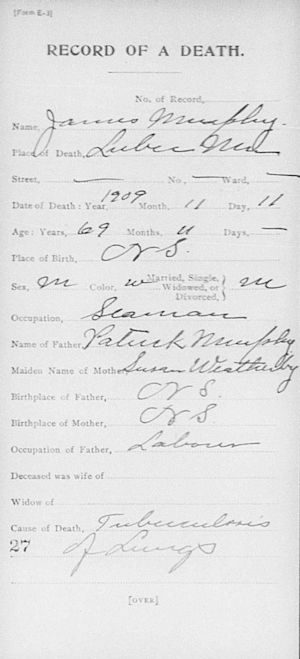 [Form E-3]
RECORD OF A DEATH.
No. of Record,
Name, James Murphy.
Place of Death, Lubec Me
Street, — No., — Ward, —
Date of Death: Year, 1909 Month, 11 Day, 11
Age: Years, 69 Months, 11 Days, —
Place of Birth, N S.
Sex, M Color, W Married, Single, Widowed, or Divorced, } M
Occupation, Seaman
Name of Father, Patrick Murphy
Maiden Name of Mother Susan Weatherby
Birthplace of Father, N S.
Birthplace of Mother, N S
Occupation of Father, Labour
Deceased was wife of
Widow of
Cause of Death, Tuberculosis
27 of Lungs
[OVER]